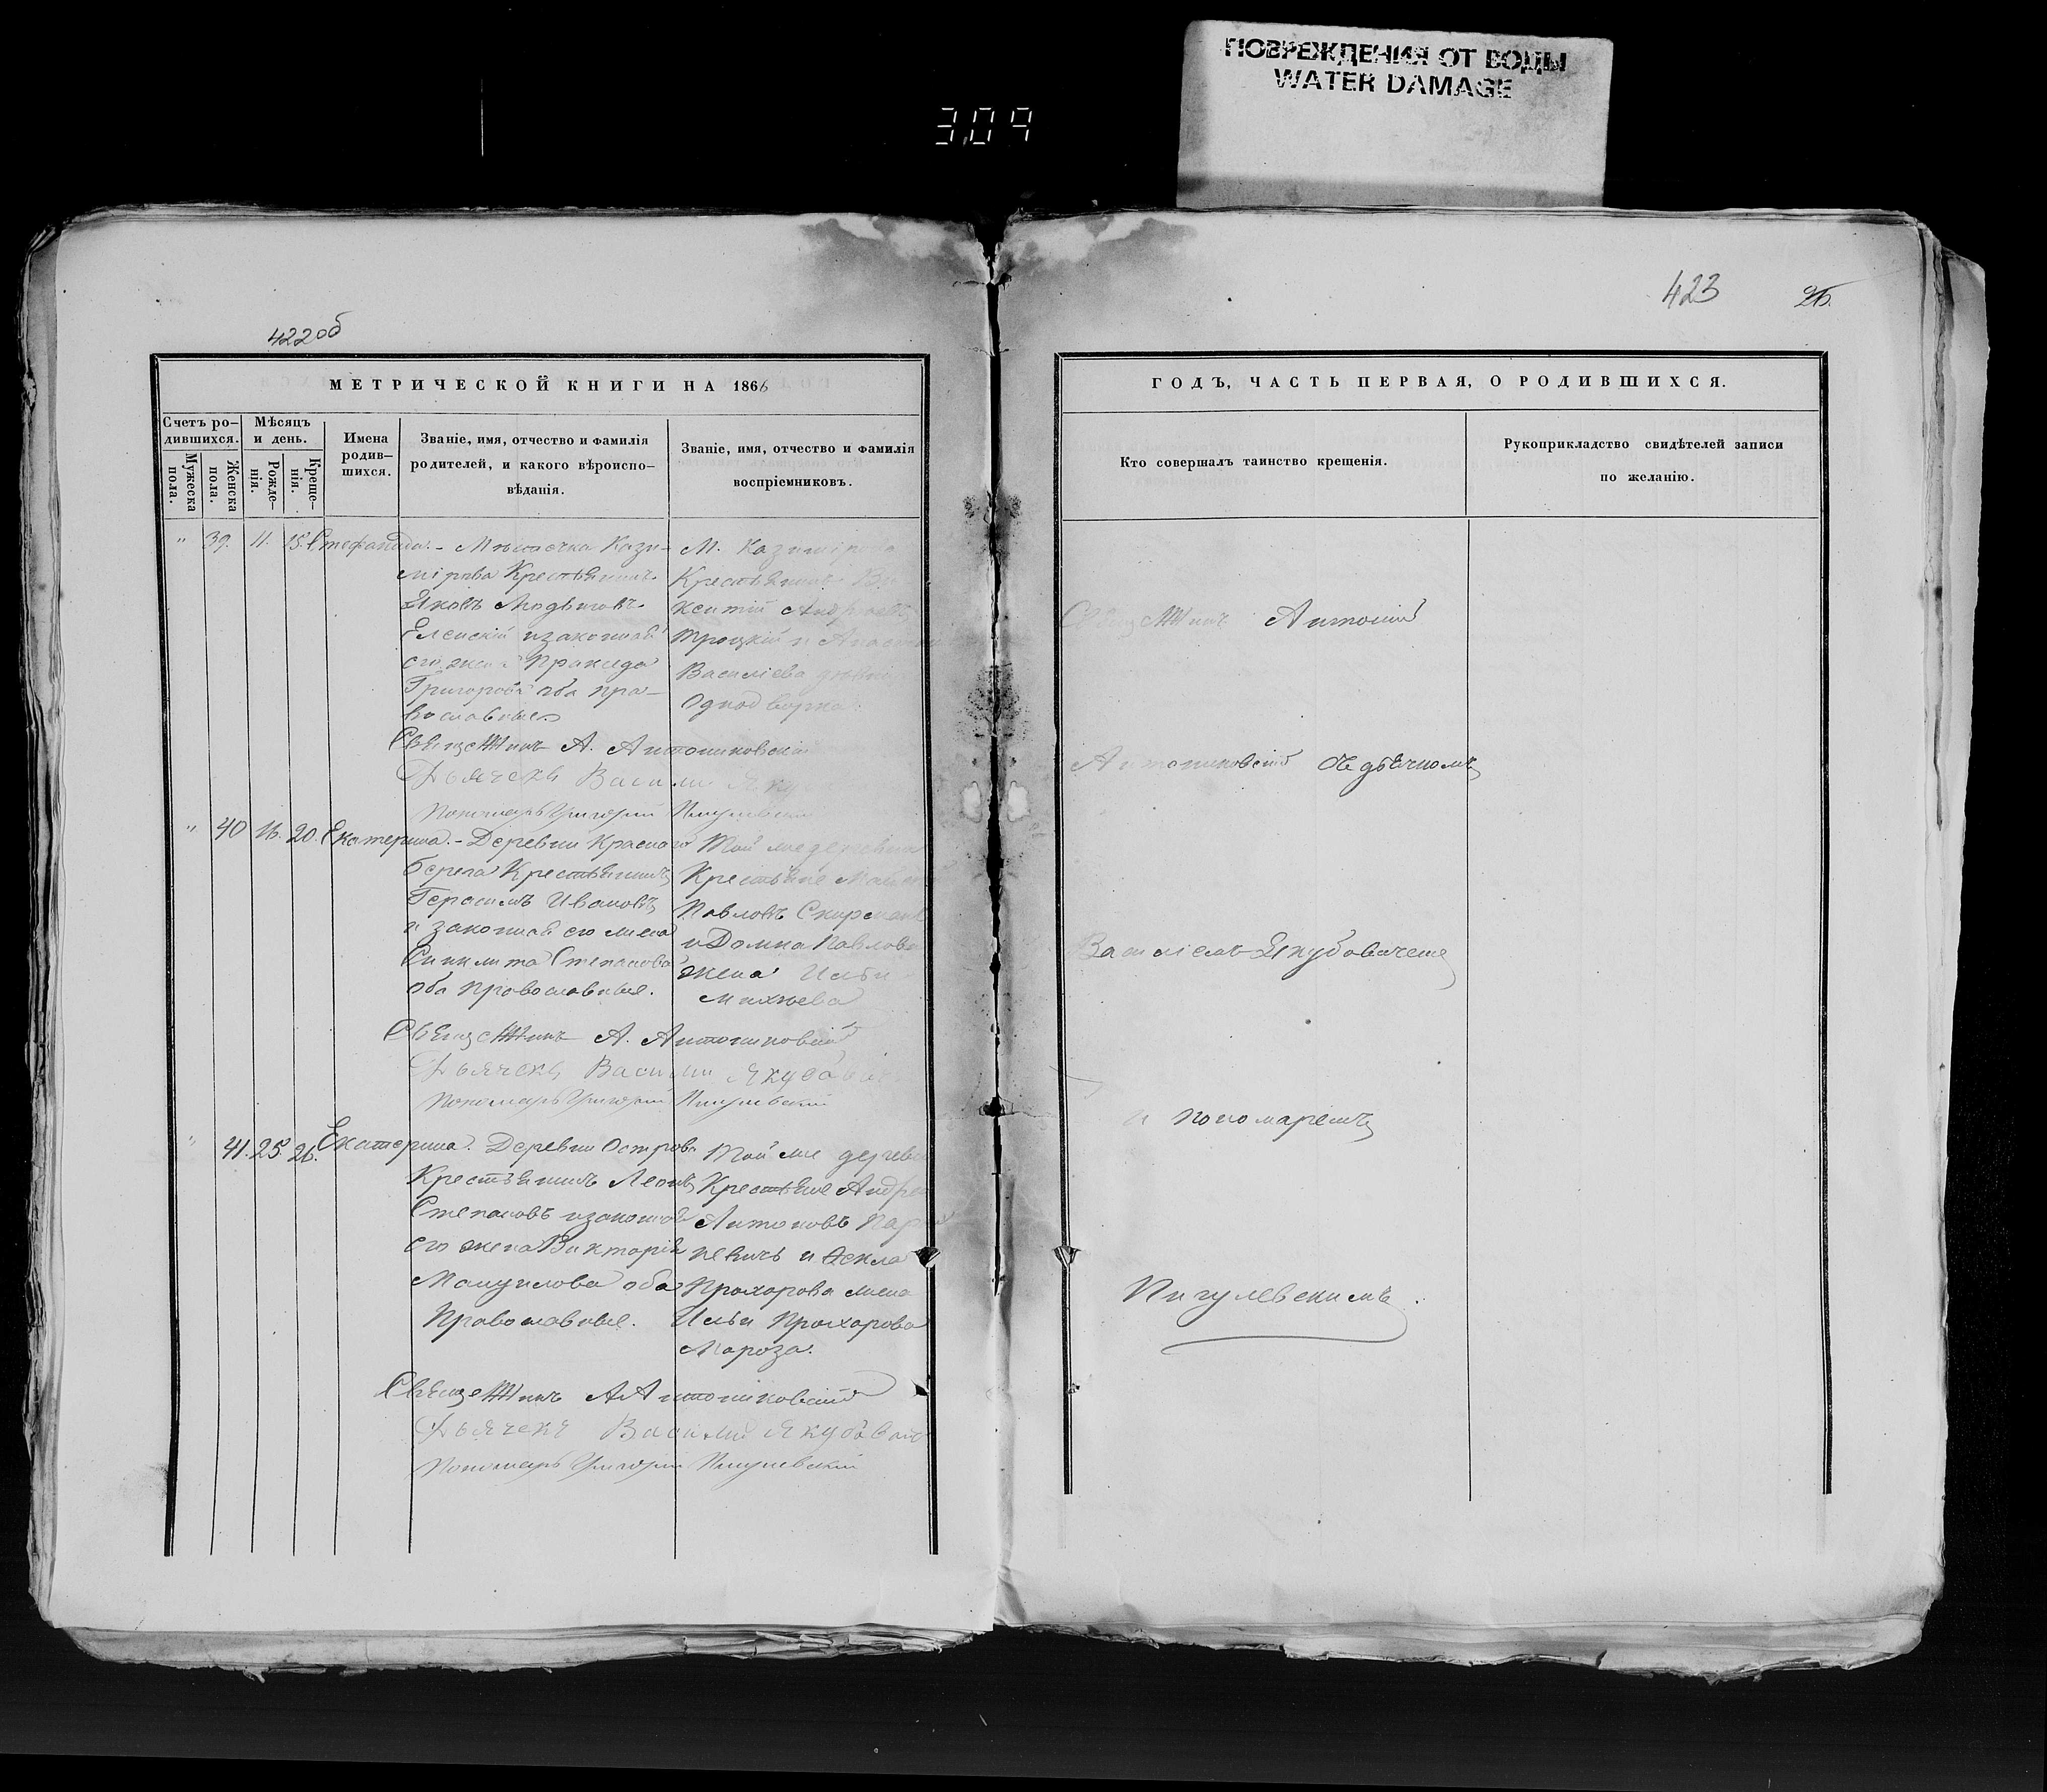 ПОВРЕЖДЕНИЯ ОТ ВОДЫ
WATER DAMAGE
3,09
422об
МЕТРИЧЕСКОЙ КНИГИ НА 1866
Счетъ ро-
дившихся.
Мужеска
пола.
Женска
пола.
Мѣсяцъ
и день.
Рожде-
нія.
Креще-
нія.
Имена
родив-
шихся.
Званіе, имя, отчество и фамилія
родителей, и какого вѣроиспо-
вѣданія.
Званіе, имя, отчество и фамилія
воспріемниковъ.
" 39. 11. 15. Стефанида.
Мѣстечка Кази-
мірова Крестьянинъ
Яковъ Людвиговъ
Еленскій и законная
его жена
Григорова оба пра-
вославные
М. Казимірова
Крестьянинъ Ви-
кентій Андреевъ
Троцкій и
Василіева
Однодворка
А. Антониковскій
Дьячекъ Василій
Пономарь Григорій Пигулевскій
" 40 16. 20. Екатерина.
Деревни Краснаго
берега Крестьянинъ
Герасимъ Ивановъ
и законная его жена
Степанова
оба православные.
Той же деревни
Крестьяне
Павловъ
и Домна Павлова
жена Ильи
Михнева
А. Антониковскій
Дьячекъ Василій Якубовичъ
Пономарь Григорій Пигулевскій
" 41. 25. 26. Екатерина.
Деревни Острова
Крестьянинъ Леонъ
Степановъ и законная
его жена Викторія
Мануилова оба
Православные.
Той же деревни
Крестьяне Андрей
Антоновъ
и Ѳекла
Прохорова жена
Ильи Прохорова
Мороза.
А Антониковскій
Дьячекъ Василій Якубовичъ
Пономарь Григорій Пигулевскій
423
26.
ГОДЪ, ЧАСТЬ ПЕРВАЯ, О РОДИВШИХСЯ.
Кто совершалъ таинство крещенія.
Рукоприкладство свидѣтелей записи
по желанію.
Антоній
Антониковскій съ дьячкомъ
Василіемъ Якубовичемъ
и пономаремъ
Пигулевскимъ.